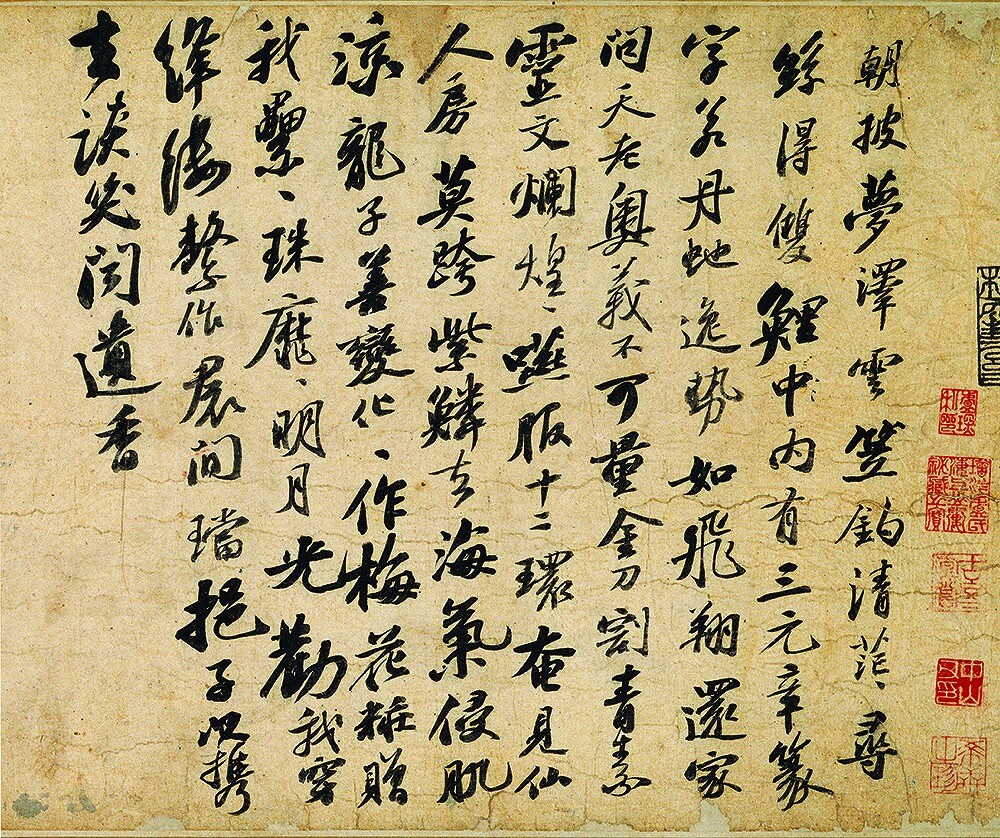 朝披夢澤雲笠釣清茫〻尋
絲得雙鯉中内有三元章篆
字若丹虵逸勢如飛翔還家
問天老奥義不可量金刀割青素
靈文爛煌〻嚥服十二環奄見仙
人房莫跨紫鱗去海氣侵肌
涼龍子善變化〻作梅花糚贈
我纍〻珠靡〻明月光勸我穿
絳縷繫作裙間璫挹子以携
去談笑聞遺香